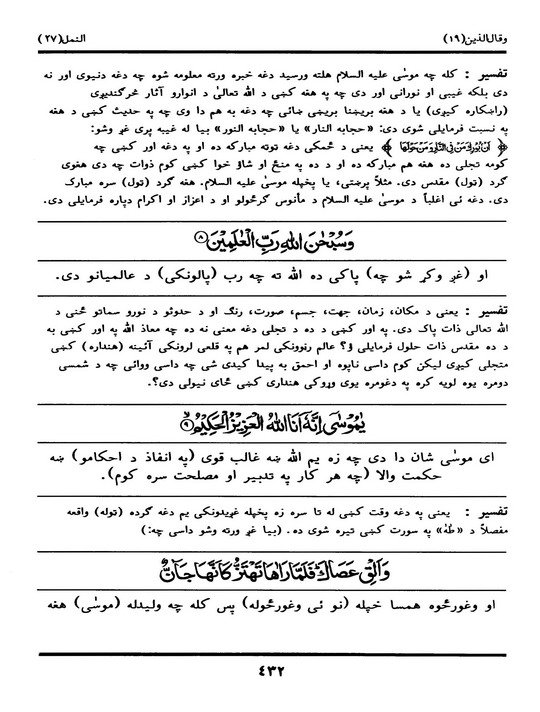 وقال الذین(۱۹) النمل(۲۷)
تفسیر : کله چه موسٰی علیه السلام هلته ورسید دغه خبره ورته معلومه شوه چه دغه دنیوی اور نه
دی بلکه غیبی او نورانی اور دی چه په هغه کښی د الله تعالیٰ د انوارو آثار څرگندیږی
(راښکاره کیږی) یا د هغه بریښنا بریښی ښائی چه دغه به هم دا وی چه په حدیث کښی د هغه
په نسبت فرمایلی شوی دی: «حجابه النار» یا «حجابه النور» بیا له غیبه پری غږ وشو:
﴿ اَنْ بُوْرِكَ مَنْ فِی النَّارِ وَمَنْ حَوْلَهَا ﴾ یعنی د ځمکی دغه توته مبارکه ده او په دغه اور کښی چه
کومه تجلی ده هغه هم مبارکه ده او د ده په منځ او شاؤ خوا کښی کوم ذوات چه دی هغوی
گرد (تول) مقدس دی. مثلاً پرښتی، یا پخپله موسیٰ علیه السلام. هغه گرد (تول) سره مبارک
دی. دغه ئی اغلباً د موسیٰ علیه السلام د مأنوس گرځولو او د اعزاز او اکرام دپاره فرمایلی دی.
وَسُبْحٰنَ اللهِ رَبِّ الْعٰلَمِیْنَ ۸
او (غږ وکړ شو چه) پاکی ده الله ته چه رب (پالونکی) د عالمیانو دی.
تفسیر : یعنی د مکان، زمان، جهت، جسم، صورت، رنگ او د حدوثو د نورو سماتو ځنی د
الله تعالی ذات پاک دی. په اور کښی د ده د تجلی دغه معنی نه ده چه معاذ الله په اور کښی به
د ده مقدس ذات حلول فرمایلی ؤ؟ عالم رڼوونکی لمر هم په قلعی لرونکی آئینه (هنداره) کښی
متجلی کیږی لیکن کوم داسی ناپوه او احمق به پیدا کیدی شی چه داسی ووائی چه د شمسی
دومره یوه لویه کره په دغومره یوی وړوکی هنداری کښی ځای نیولی دی؟.
یٰمُوْسٰی اِنَّهٗۤ اَنَا اللهُ الْعَزِیْزُ الْحَكِیْمُ ۹
ای موسٰی شان دا دی چه زه یم الله ښه غالب قوی (په انفاذ د احکامو) ښه
حکمت والا (چه هر کار په تدبیر او مصلحت سره کوم).
تفسیر : یعنی په دغه وقت کښی له تا سره زه پخپله غږیدونکی یم دغه گرده (توله) واقعه
مفصلاً د «طٰهٰ» په سورت کښی تیره شوی ده. (بیا غږ ورته وشو داسی چه:)
وَاَلْقِ عَصَاكَ فَلَمَّا رَاٰهَا تَهْتَزُّ كَاَنَّهَا جَآنٌّ
او وغورځوه همسا خپله (نو ئی وغورځوله) پس کله چه ولیدله (موسٰی) هغه
۴۳۲